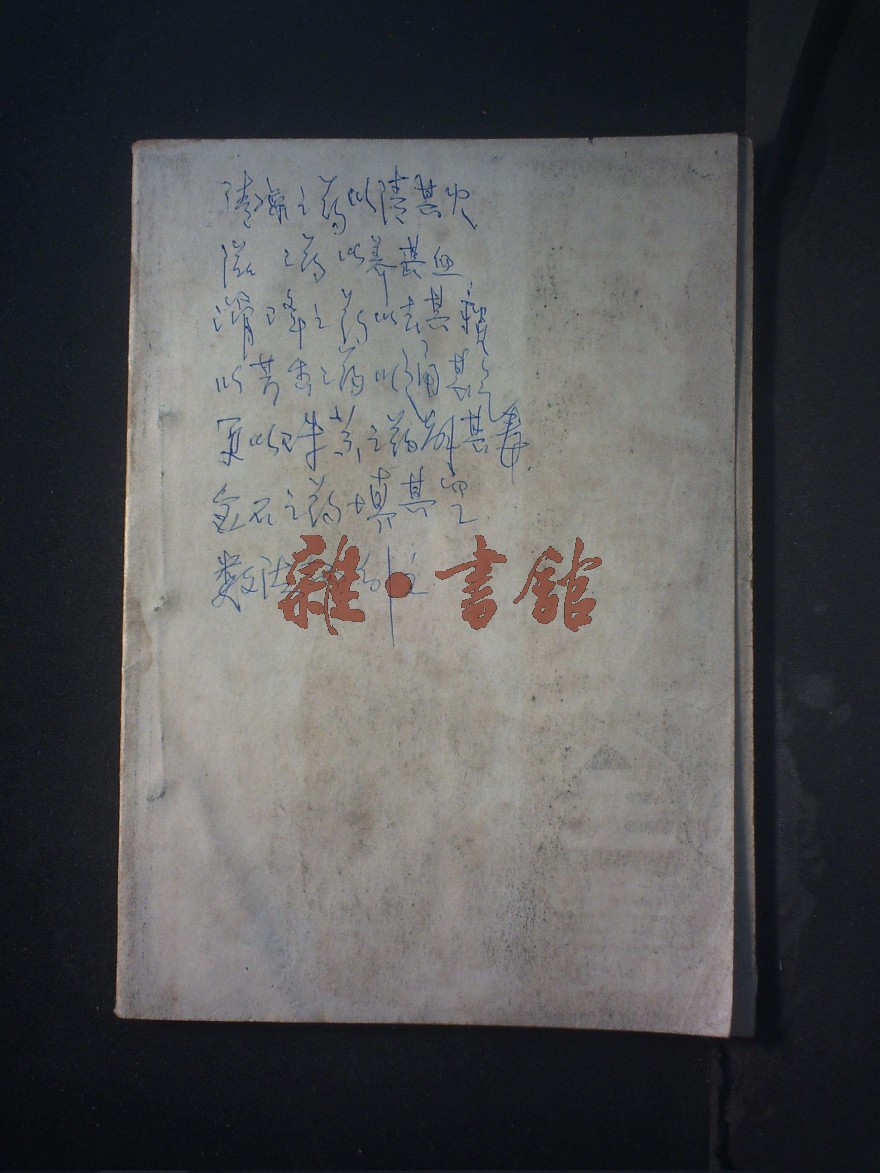 清凉之药以清其火
滋 之药 以养其血
滑降之药以去其
以芳香之药以通其气
更以珠黄之药解其毒.
金石之药填其空
数法
雜•書館